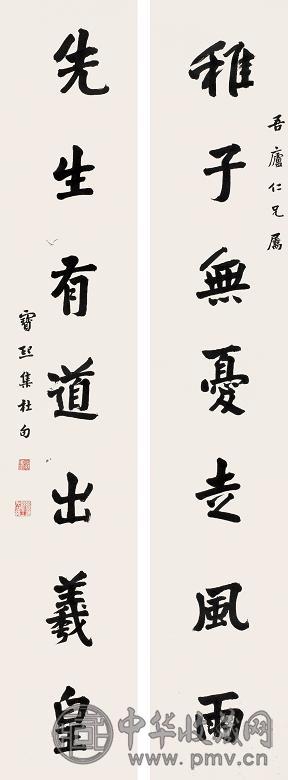 吾廬仁兄屬
稚子無憂走風雨
先生有道出羲皇
寶熙集杜句
中华收藏网
www.pmv.cn